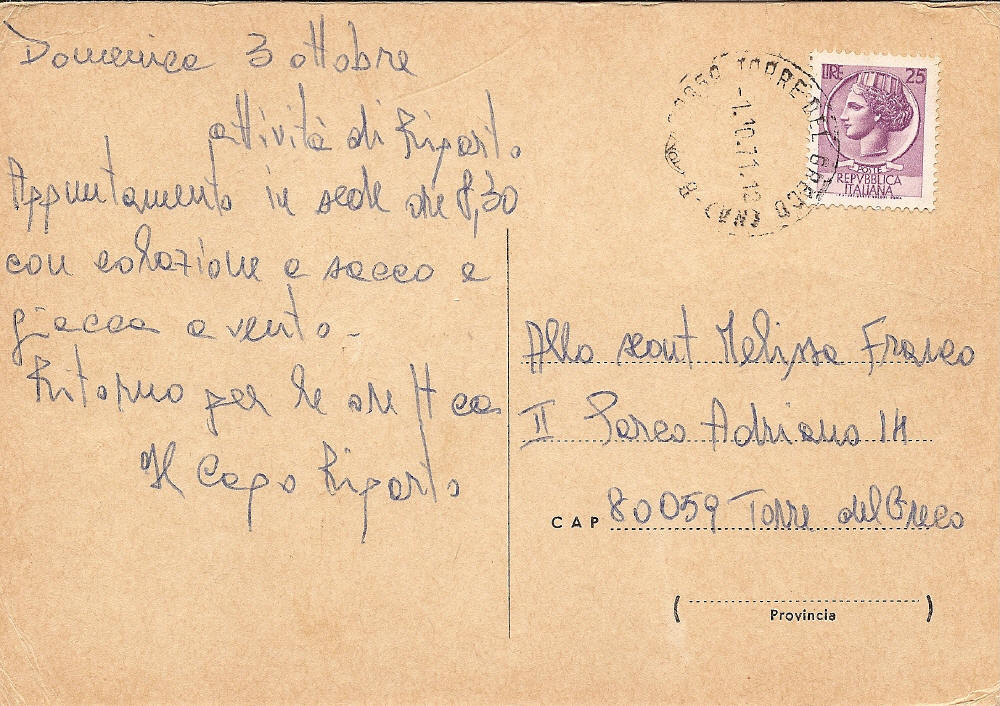 Domenica 3 ottobre
attività di Riparto
Appuntamento in sede ore 8,30
con colazione a sacco e
giacca a vento -
Ritorno per le ore 14 ca
Il Capo Riparto
TORRE DEL GRECO (NA) - B
-1.10.71.12
LIRE 25
POSTE
REPVBBLICA
ITALIANA
Allo scout Melissa Franco
II Parco Adriano 14
CAP 80059 Torre del Greco
( )
Provincia